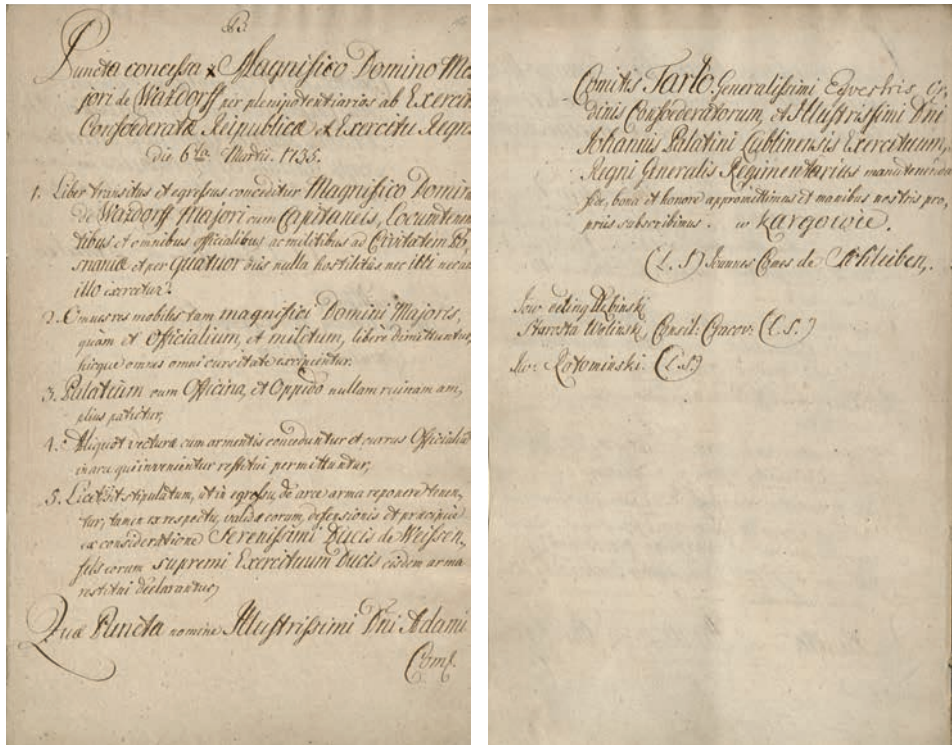 B.
Puncta concessa Magnifico Domino Ma
jori de Wardorff per plenipotentiarios ab Exercit
Confoederatæ Reipublicæ et Exercitu Regni
die 6ta Martii. 1735.
1. Liber transitus et egressus conceditur Magnifico Domin
de Wardorff Majori cum Capitaneis, Locumtenen
tibus et omnibus officialibus ac militibus ad Civitatem Po
snaniæ et per Quatuor dies nulla hostilitas nec illi nec ab
illo exercetur.
2. Omnes res mobiles tam magnifici Domini Majoris,
quam et Officialium, et militum, libere dimittuntur,
hicque omnes omni excipiuntur.
3. Palatium cum Officina, et Oppido nullam ruinam am,
plius patietur,
4. Aliquot vecturæ cum armentis conceduntur et currus Officialiu
in arce qui invenientur restitui permittuntur,
5. Licet sit stipulatum, ut in egressu, de arce arma reponere tenen,
tur, tamen ex respectu, validæ eorum, defensionis et præcipue
ex consideratione Serenissimi Ducis de Weissen,
fels eorum supremi Exercituum Ducis eisdem arma
restitui declarantur,
Quæ Puncta nomine Illustrissimi Dni Adami
Com.
Comitis Tarlo Generalissimi Equestris, Or
dinis Confoederatorum, et Illustrissimi Dni
Johannis Palatini Lublinensis Exercituum,
Regni Generalis Regimentarius manutenenda
fide, bona et honore appromittimus et manibus nostris pro,
priis subscribimus. w Kargowie.
(L. S.) Joannes Comes de Schlieben,
Starosta Wolinski, Consil: Cracov: (L. S.)
Rotominski. (L.S.)